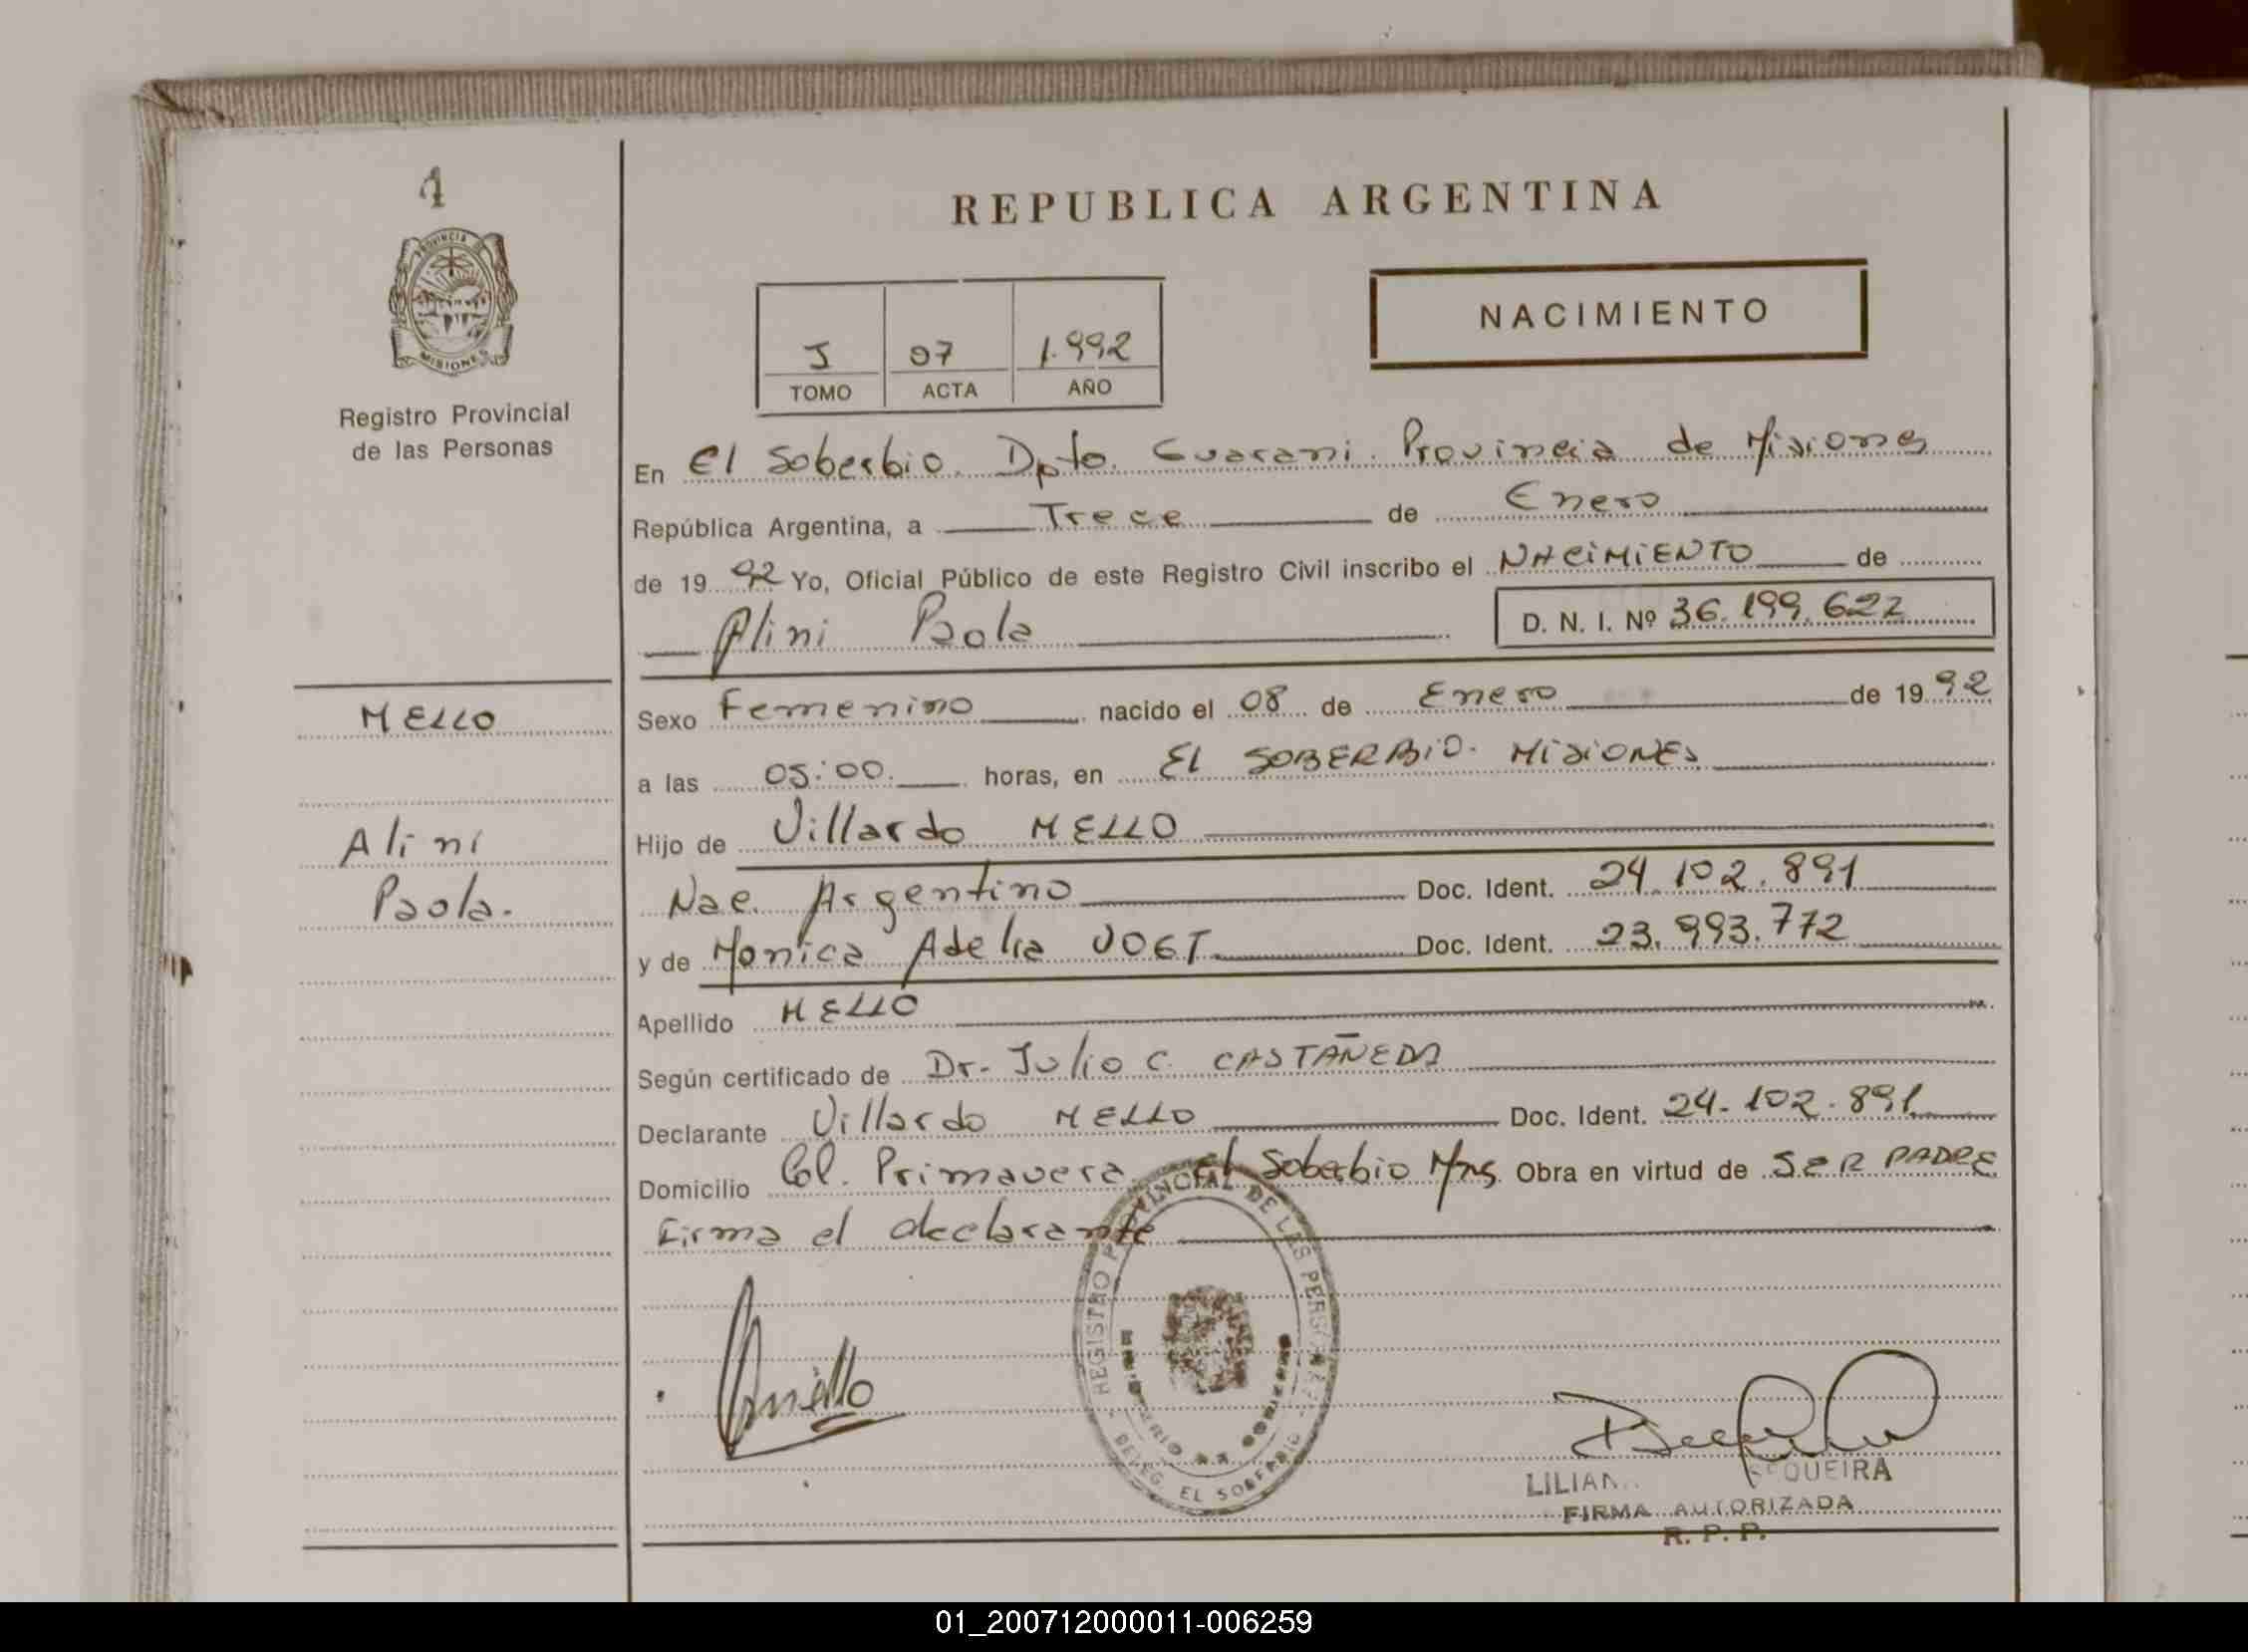 4
PROVINCIA DE
MISIONES
Registro Provincial
de las Personas
MELLO
Alini
Paola.
REPUBLICA ARGENTINA
NACIMIENTO
I 07 1.992
TOMO ACTA AÑO
En El Soberbio. Dpto. Guarani. Provincia de Misiones
República Argentina, a Trece de Enero
de 1992 Yo, Oficial Público de este Registro Civil inscribo el NACIMIENTO de
Alini Paola D. N. I. Nº 36.199.622
Sexo Femenino nacido el 08 de Enero de 1992
a las 05:00. horas, en El SOBERBIO. MISIONES
Hijo de Villardo MELLO
Nac. Argentino Doc. Ident. 24.102.891
y de Monica Adelia VOGT Doc. Ident. 23.993.772
Apellido MELLO
Según certificado de Dr. Julio C. CASTAÑEDA
Declarante Villardo MELLO Doc. Ident. 24.102.891
Domicilio Col. Primavera. El Soberbio Mnes. Obra en virtud de SER PADRE
Firma el declarante
REGISTRO PROVINCIAL DE LAS PERSONAS
EL SOBERBIO
LILIAN SEQUEIRA
FIRMA AUTORIZADA
R. P. P.
01_200712000011-006259